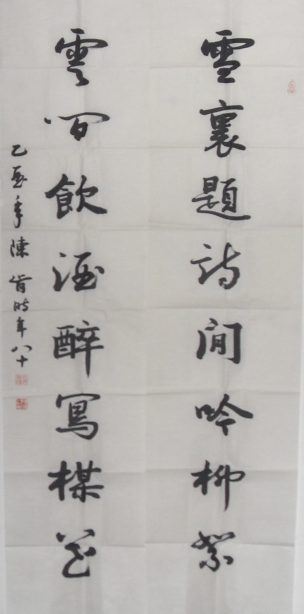 雪裏題詩閒吟柳絮
雲間飲酒醉寫楳花
乙酉年陳肯時年八十